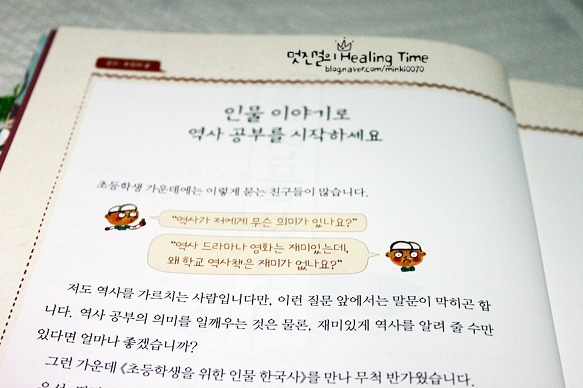 멋진걸의 Healing Time
blog.naver.com/minki0070
인물 이야기로
역사 공부를 시작하세요
초등학생 가운데에는 이렇게 묻는 친구들이 많습니다.
"역사가 저에게 무슨 의미가 있나요?"
"역사 드라마나 영화는 재미있는데,
왜 학교 역사책은 재미가 없나요?"
저도 역사를 가르치는 사람입니다만, 이런 질문 앞에서는 말문이 막히곤 합
니다. 역사 공부의 의미를 일깨우는 것은 물론, 재미있게 역사를 알려 줄 수만
있다면 얼마나 좋겠습니까?
그런 가운데 《초등학생을 위한 인물 한국사》를 만나 무척 반가웠습니다.